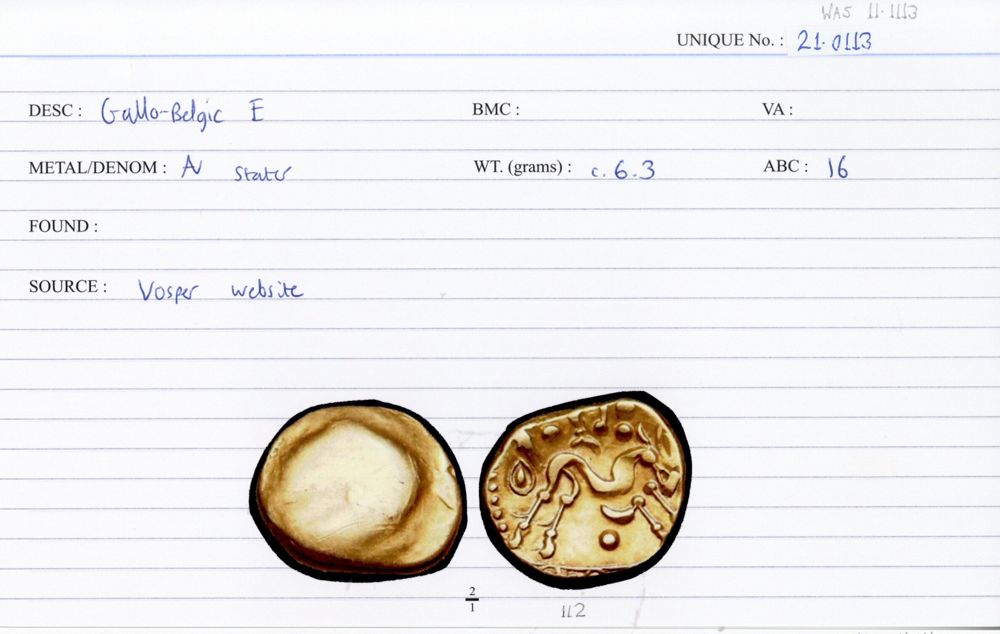 WAS 11.1113
UNIQUE No. : 21.0113
DESC : Gallo-Belgic E BMC : VA :
METAL/DENOM : AV Stater WT. (grams) : c. 6.3 ABC : 16
FOUND :
SOURCE : Vosper website
2
1
112